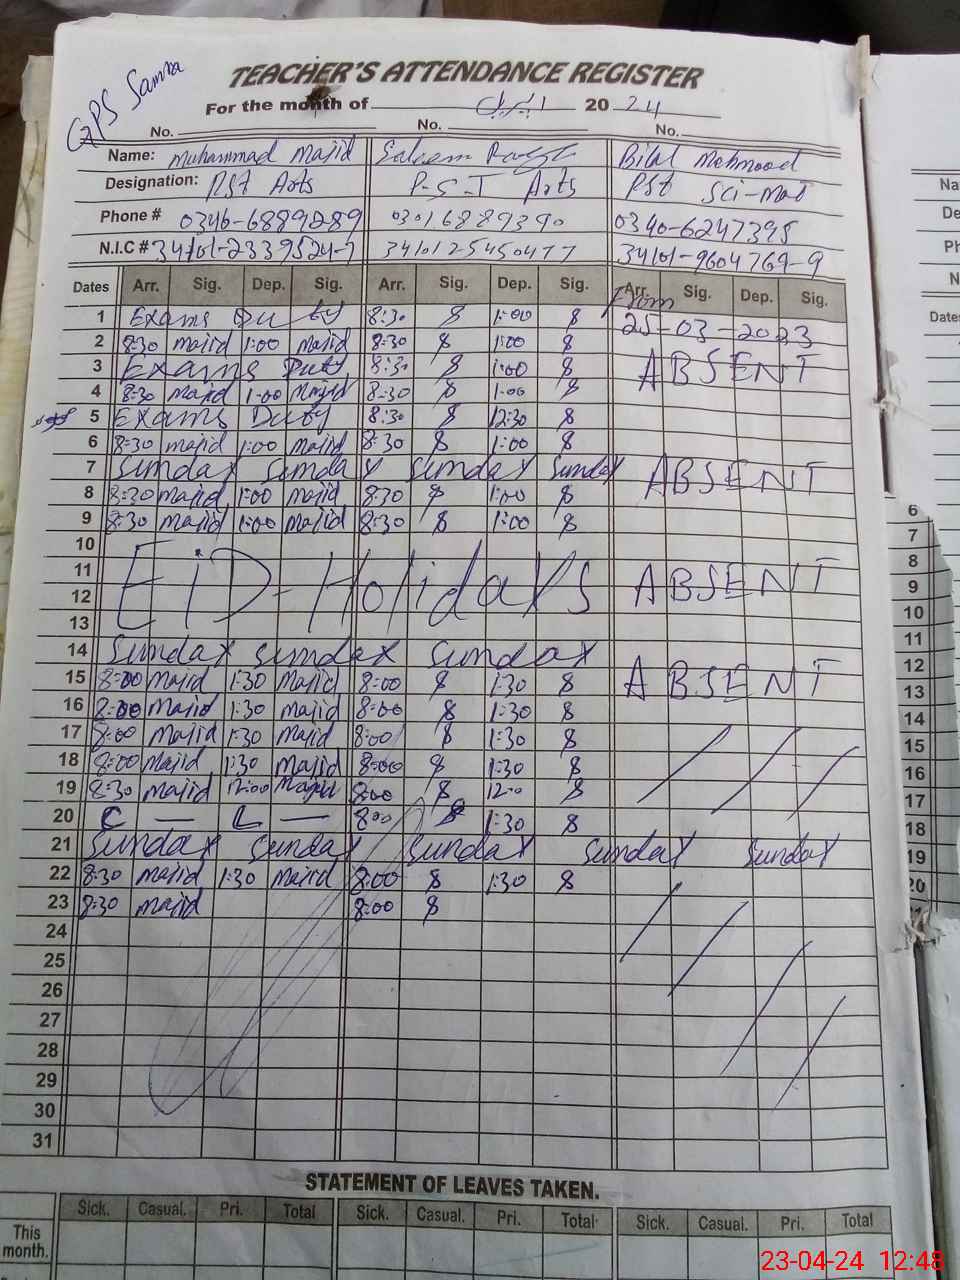 GPS Samra
TEACHER'S ATTENDANCE REGISTER
For the month of اپریل 20 24
No. No. No.
Name: Muhammad Majid Saleem Bilal Mehmood
Designation: PST Arts P-S-T Arts PST Sci-Mat
Phone # 0346-6889289 03016889390 0340-6247395
N.I.C # 34101-2339524-7 3410125450477 34101-9604769-9
Dates Arr. Sig. Dep. Sig. Arr. Sig. Dep. Sig. Arr. Sig. Dep. Sig.
From
1 Exams Duty 8:30 1:00 25-03-2023
2 8:30 majid 1:00 majid 8:30 1:00
3 Exams Duty 8:30 1:00 ABSENT
4 8:30 majid 1:00 Majid 8:30 1:00
5 Exams Duty 8:30 12:30
6 8:30 majid 1:00 Majid 8:30 1:00
7 Sunday Sunday Sunday Sunday ABSENT
8 8:30 majid 1:00 majid 8:30 1:00
9 8:30 majid 1:00 majid 8:30 1:00
10
11 EiD-Holidays ABSENT
12
13
14 Sunday Sunday Sunday
15 8:00 majid 1:30 Majid 8:00 1:30 ABSENT
16 8:00 Majid 1:30 Majid 8:00 1:30
17 8:00 Majid 1:30 Majid 8:00 1:30
18 8:00 Majid 1:30 Majid 8:00 1:30
19 8:30 majid 12:00 Majid 8:00 12:0
20 C — L — 8:00 1:30
21 Sunday Sunday Sunday Sunday Sunday
22 8:30 majid 1:30 Majid 8:00 1:30
23 8:30 majid 8:00
24
25
26
27
28
29
30
31
STATEMENT OF LEAVES TAKEN.
Sick. Casual. Pri. Total Sick. Casual. Pri. Total Sick. Casual. Pri. Total
This
month.
Na
De
Ph
N
Dates
6
7
8
9
10
11
12
13
14
15
16
17
18
19
20
23-04-24 12:48